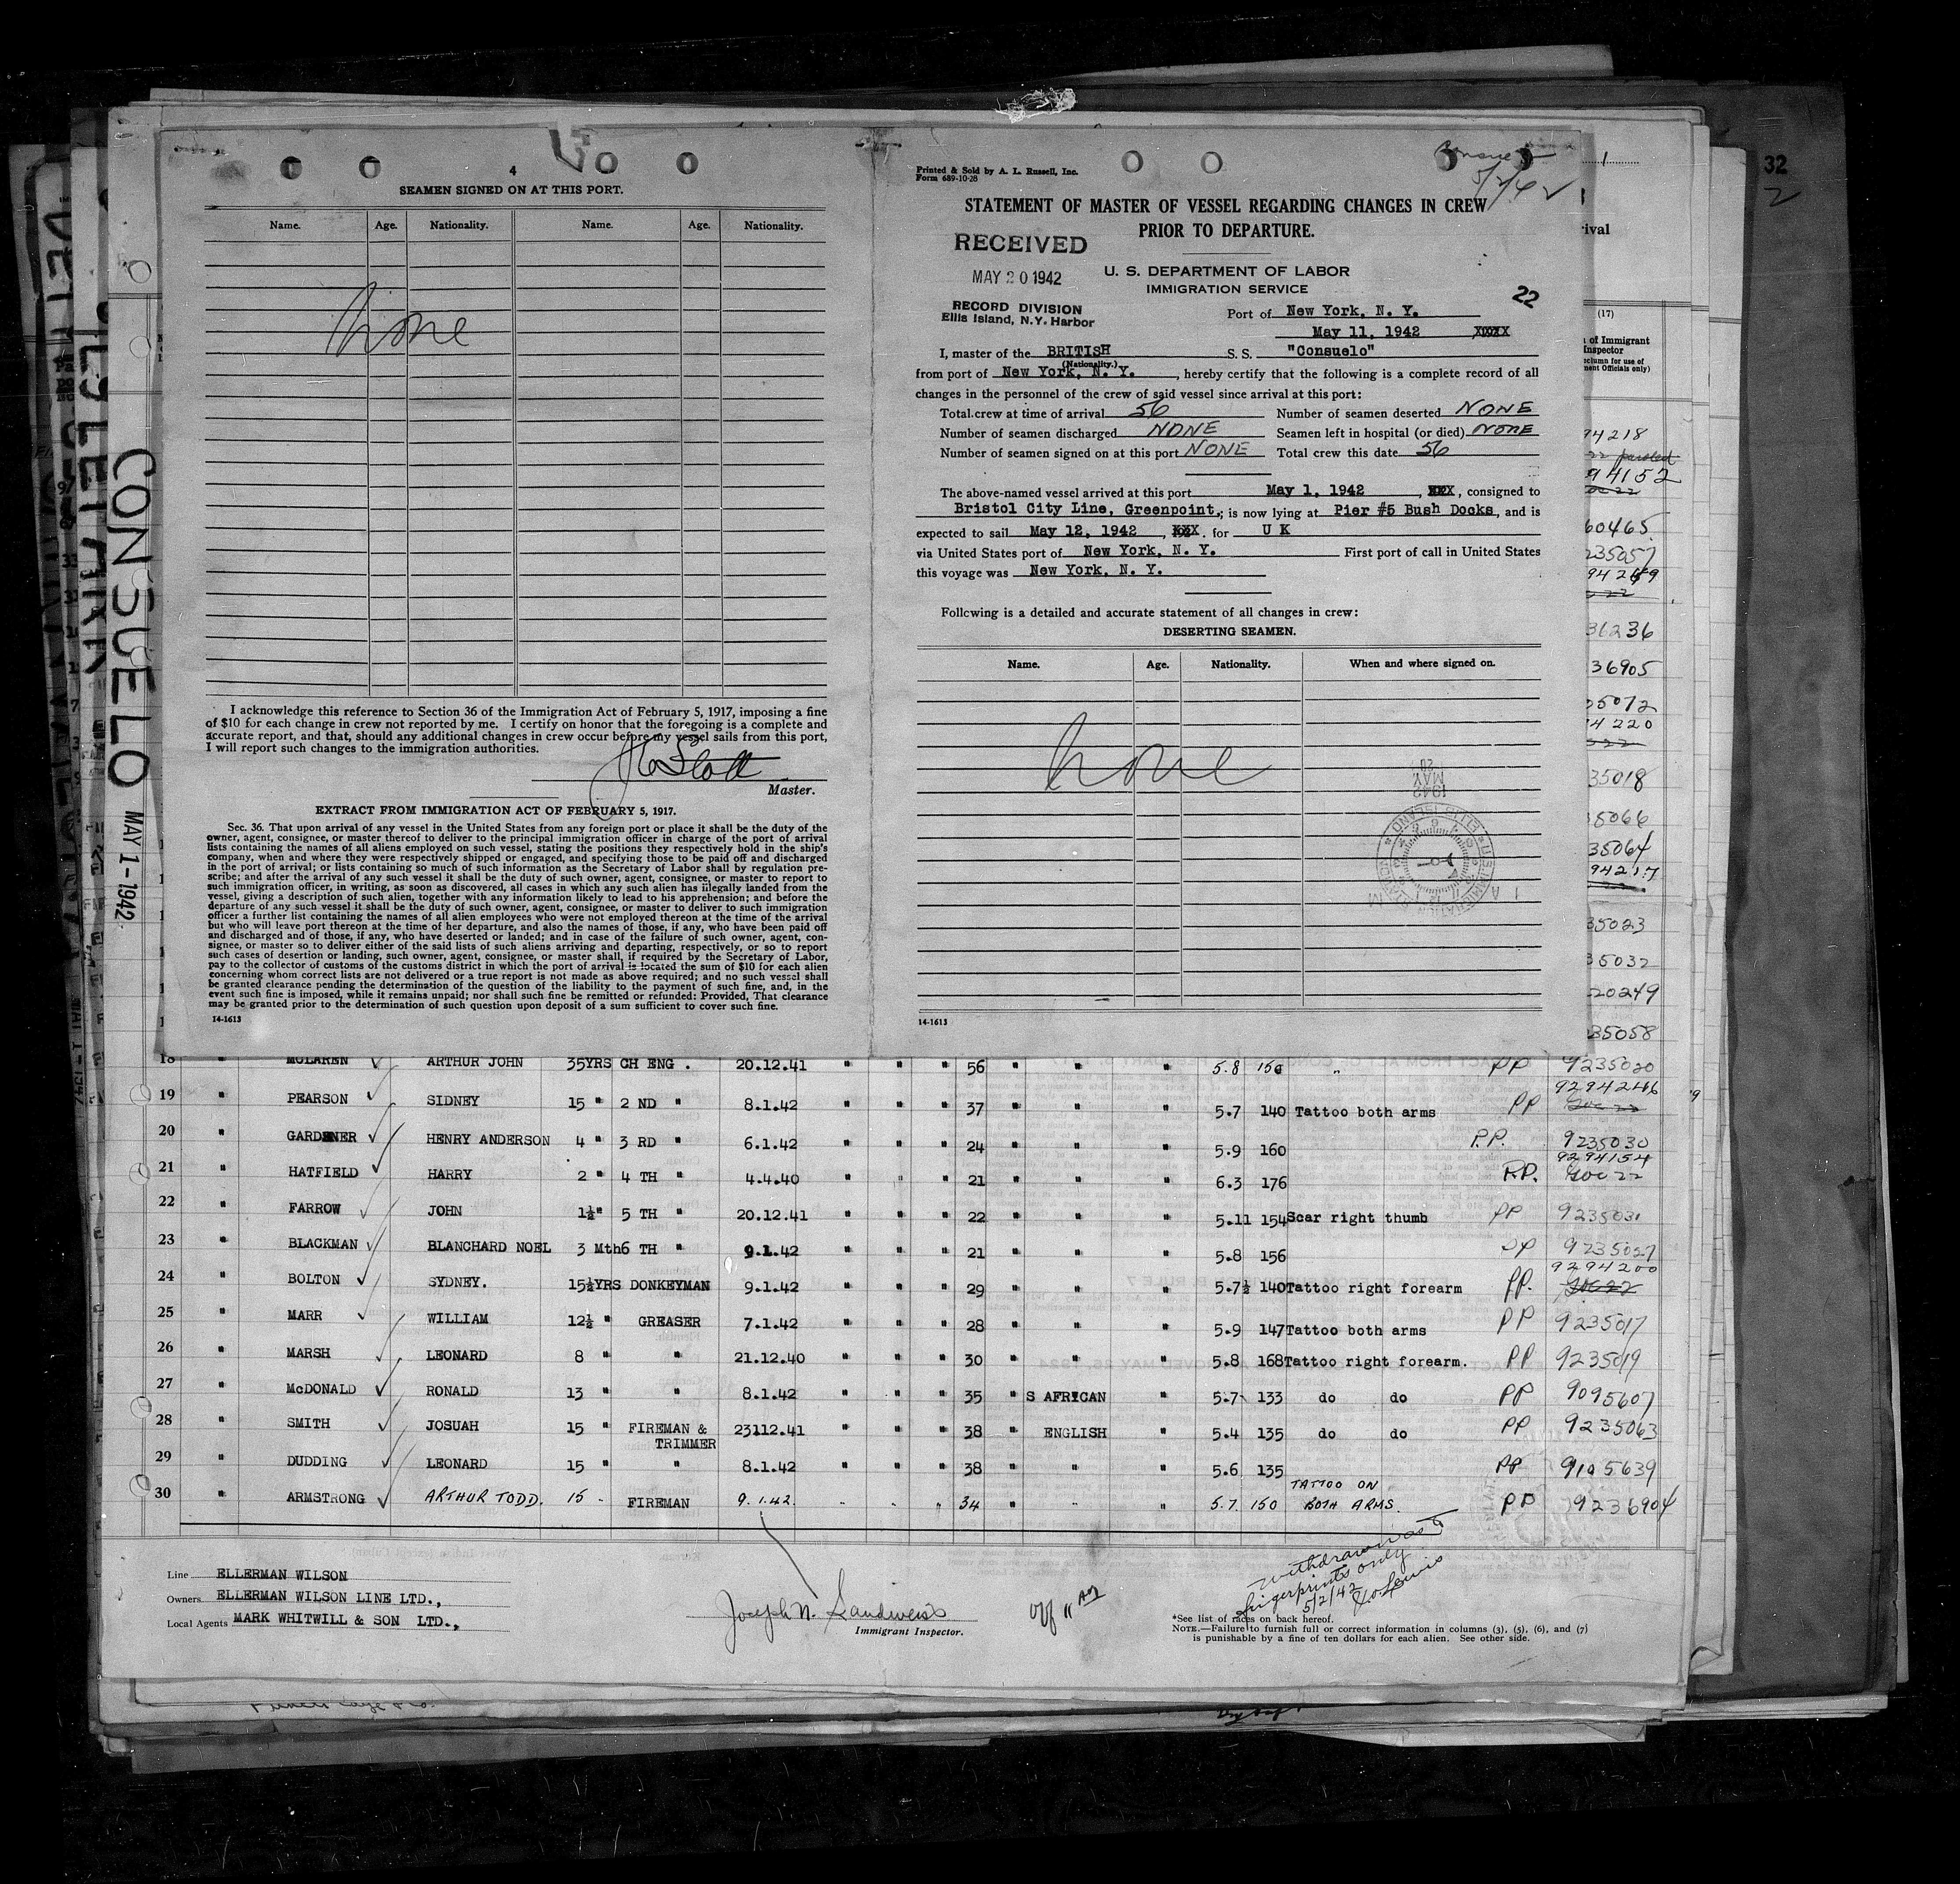 4
SEAMEN SIGNED ON AT THIS PORT.
Name. Age. Nationality. Name. Age. Nationality.
none
I acknowledge this reference to Section 36 of the Immigration Act of February 5, 1917, imposing a fine
of $10 for each change in crew not reported by me. I certify on honor that the foregoing is a complete and
accurate report, and that, should any additional changes in crew occur before my vessel sails from this port,
I will report such changes to the immigration authorities.
Master.
EXTRACT FROM IMMIGRATION ACT OF FEBRUARY 5, 1917.
Sec. 36. That upon arrival of any vessel in the United States from any foreign port or place it shall be the duty of the
owner, agent, consignee, or master thereof to deliver to the principal immigration officer in charge of the port of arrival
lists containing the names of all aliens employed on such vessel, stating the positions they respectively hold in the ship's
company, when and where they were respectively shipped or engaged, and specifying those to be paid off and discharged
in the port of arrival; or lists containing so much of such information as the Secretary of Labor shall by regulation pre-
scribe; and after the arrival of any such vessel it shall be the duty of such owner, agent, consignee, or master to report to
such immigration officer, in writing, as soon as discovered, all cases in which any such alien has illegally landed from the
vessel, giving a description of such alien, together with any information likely to lead to his apprehension; and before the
departure of any such vessel it shall be the duty of such owner, agent, consignee, or master to deliver to such immigration
officer a further list containing the names of all alien employees who were not employed thereon at the time of the arrival
but who will leave port thereon at the time of her departure, and also the names of those, if any, who have been paid off
and discharged and of those, if any, who have deserted or landed; and in case of the failure of such owner, agent, con-
signee, or master so to deliver either of the said lists of such aliens arriving and departing, respectively, or so to report
such cases of desertion or landing, such owner, agent, consignee, or master shall, if required by the Secretary of Labor,
pay to the collector of customs of the customs district in which the port of arrival is located the sum of $10 for each alien
concerning whom correct lists are not delivered or a true report is not made as above required; and no such vessel shall
be granted clearance pending the determination of the question of the liability to the payment of such fine, and, in the
event such fine is imposed, while it remains unpaid; nor shall such fine be remitted or refunded: Provided, That clearance
may be granted prior to the determination of such question upon deposit of a sum sufficient to cover such fine.
14-1613
Printed & Sold by A. L. Russell, Inc.
Form 689-10-28
5/2/42
STATEMENT OF MASTER OF VESSEL REGARDING CHANGES IN CREW
PRIOR TO DEPARTURE.
RECEIVED
MAY 20 1942
RECORD DIVISION
Ellis Island, N.Y. Harbor
U. S. DEPARTMENT OF LABOR
IMMIGRATION SERVICE
22
Port of New York, N. Y.
May 11, 1942 XXXXX
I, master of the BRITISH S. S. "Consuelo"
(Nationality.)
from port of New York, N. Y., hereby certify that the following is a complete record of all
changes in the personnel of the crew of said vessel since arrival at this port:
Total crew at time of arrival 56 Number of seamen deserted NONE
Number of seamen discharged NONE Seamen left in hospital (or died) NONE
Number of seamen signed on at this port NONE Total crew this date 56
The above-named vessel arrived at this port May 1, 1942, XXX, consigned to
Bristol City Line, Greenpoint,; is now lying at Pier #5 Bush Docks, and is
expected to sail May 12, 1942, XXX. for U K
via United States port of New York, N. Y. First port of call in United States
this voyage was New York, N. Y.
Following is a detailed and accurate statement of all changes in crew:
DESERTING SEAMEN.
Name. Age. Nationality. When and where signed on.
none
1942
MAY
20
14-1613
CONSUELO MAY 1-1942
32
2
(17)
of Immigrant
Inspector
94218
94152
60465
235057
36905
35018
35066
35064
35023
35032
20249
35058
18 " McLAREN ARTHUR JOHN 35YRS CH ENG . 20.12.41 " " " 56 " " " 5.8 150 " PP 9235020
19 " PEARSON SIDNEY 15 " 2 ND " 8.1.42 " " " 37 " " " 5.7 140 Tattoo both arms PP 9294246
20 " GARDENER HENRY ANDERSON 4 " 3 RD " 6.1.42 " " " 24 " " " 5.9 160 P.P. 9235030
21 " HATFIELD HARRY 2 " 4 TH " 4.4.40 " " " 21 " " " 6.3 176 P.P. 9294154
22 " FARROW JOHN 1½" 5 TH " 20.12.41 " " " 22 " " " 5.11 154 Scar right thumb PP 9235031
23 " BLACKMAN BLANCHARD NOEL 3 Mth 6 TH " 9.1.42 " " " 21 " " " 5.8 156 PP 9235027
24 " BOLTON SYDNEY. 15½YRS DONKEYMAN 9.1.42 " " " 29 " " " 5.7½ 140 Tattoo right forearm PP. 9294200
25 " MARR WILLIAM 12½ " GREASER 7.1.42 " " " 28 " " " 5.9 147 Tattoo both arms PP 9235017
26 " MARSH LEONARD 8 " " 21.12.40 " " " 30 " " " 5.8 168 Tattoo right forearm. PP 9235019
27 " McDONALD RONALD 13 " " 8.1.42 " " " 35 " S AFRICAN " 5.7 133 do do PP 9095607
28 " SMITH JOSUAH 15 " FIREMAN & TRIMMER 23112.41 " " " 38 " ENGLISH " 5.4 135 do do PP 9235063
29 " DUDDING LEONARD 15 " " 8.1.42 " " " 38 " " " 5.6 135 PP 9105639
30 " ARMSTRONG ARTHUR TODD. 15 " FIREMAN 9.1.42. " " " 34 " " " 5.7. 150 TATTOO ON BOTH ARMS. PP 9236904
Line ELLERMAN WILSON
Owners ELLERMAN WILSON LINE LTD.,
Local Agents MARK WHITWILL & SON LTD.,
Joseph N. Sandweiss
Immigrant Inspector.
withdrawn as to
fingerprints only
5/2/42
*See list of races on back hereof.
NOTE.—Failure to furnish full or correct information in columns (3), (5), (6), and (7)
is punishable by a fine of ten dollars for each alien. See other side.